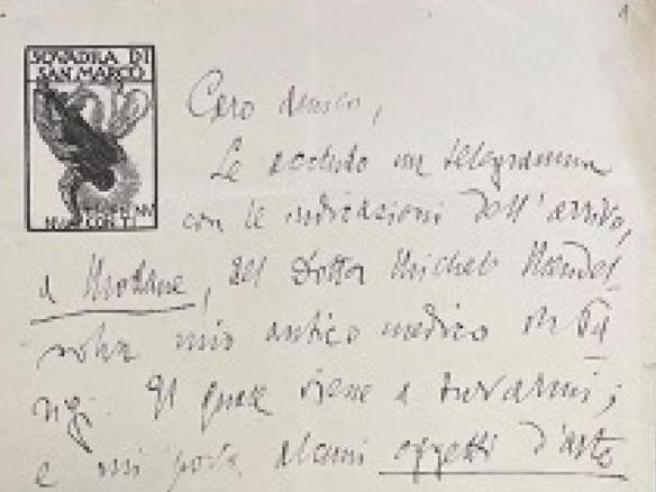 1
SQVADRA DI
SAN MARCO
Caro amico,
Le accludo un telegramma
con le indicazioni dell'arrivo,
a Modane, del Dotto Michele
mio antico medico di Pa
rigi. Il quale viene a trovarmi;
e mi porta alcuni oggetti d'arte